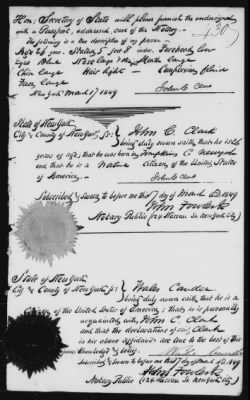 Hon: Secretary of State will please furnish the undersigned
with a Passport, addressed, care of the Notary.
The following is a true description of my person
Age 26 yrs. Stature 5 feet inches. Forehead low
Eyes Blue Nose Large Mouth Large
Chin Large Hair light Complexion florid
Face Large
New York March 17 1849
John C. Clark
State of New York
City & County of New York, ss: John C. Clark
being duly sworn saith, that he is 26
years of age, that he was born in Tompkins C. New York
and that he is a Native Citizen of the United States
of America,
John C. Clark
Subscribed & Sworn to before me this 17 day of March A.D. 1849
Notary Public (124 Nassau St. New York City)
State of New York
City & County of New York, ss:
being duly sworn saith, that he is a
of the United States of America; that he is personally
acquainted, with John C. Clark
and that the declarations of said Clark
in his above affidavit are true to the best of his
Knowledge & belief.
Subscribed & Sworn to before me this 17 day of March A.D. 1849
Notary Public (124 Nassau St. New York City)